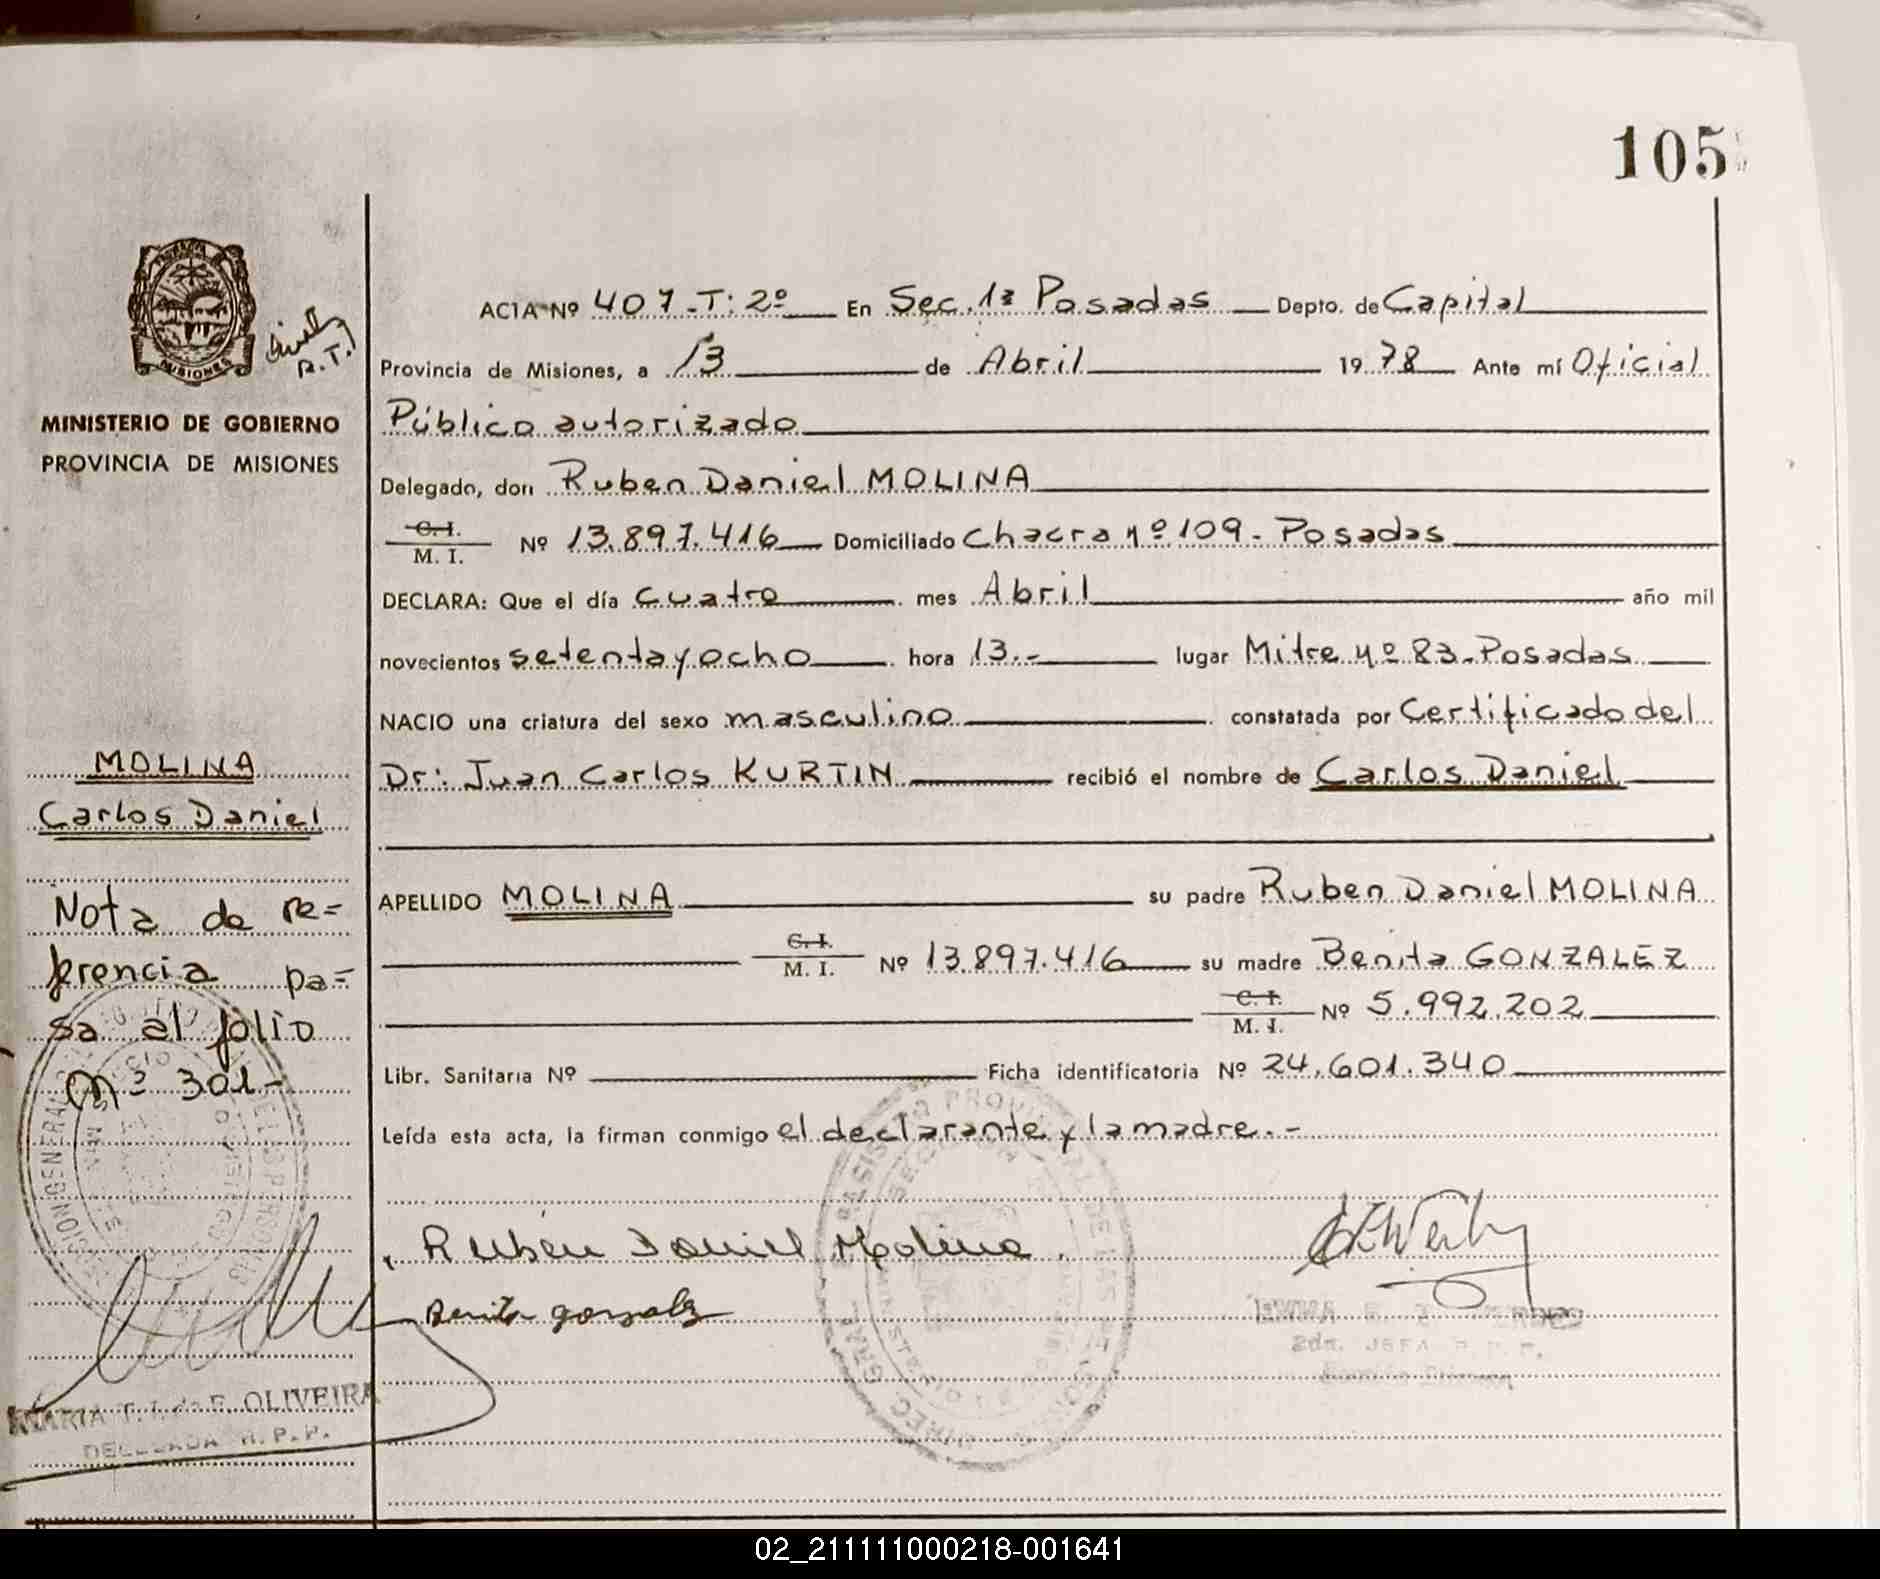 105
MISIONES
R.T.
MINISTERIO DE GOBIERNO
PROVINCIA DE MISIONES
MOLINA
Carlos Daniel
Nota de re=
ferencia pa=
sa al folio
nº 301-
OLIVEIRA
R.P.P.
ACTA Nº 407-T: 2º En Sec. 1ª Posadas Depto. de Capital
Provincia de Misiones, a 13 de Abril 1978 Ante mí Oficial
Público autorizado
Delegado, don Ruben Daniel MOLINA
C.I.
M. I. Nº 13.897.416 Domiciliado Chacra nº 109- Posadas
DECLARA: Que el día cuatro mes Abril año mil
novecientos setenta y ocho hora 13.- lugar Mitre nº 83-Posadas
NACIO una criatura del sexo masculino constatada por Certificado del
Dr: Juan Carlos KURTIN recibió el nombre de Carlos Daniel
APELLIDO MOLINA su padre Ruben Daniel MOLINA
C.I.
M. I. Nº 13.897.416 su madre Benita GONZALEZ
C.I.
M. I. Nº 5.992.202
Libr. Sanitaria Nº Ficha identificatoria Nº 24.601.340
Leída esta acta, la firman conmigo el declarante y la madre.-
Rubén Daniel Molina
Benita gonzalez
02_211111000218-001641